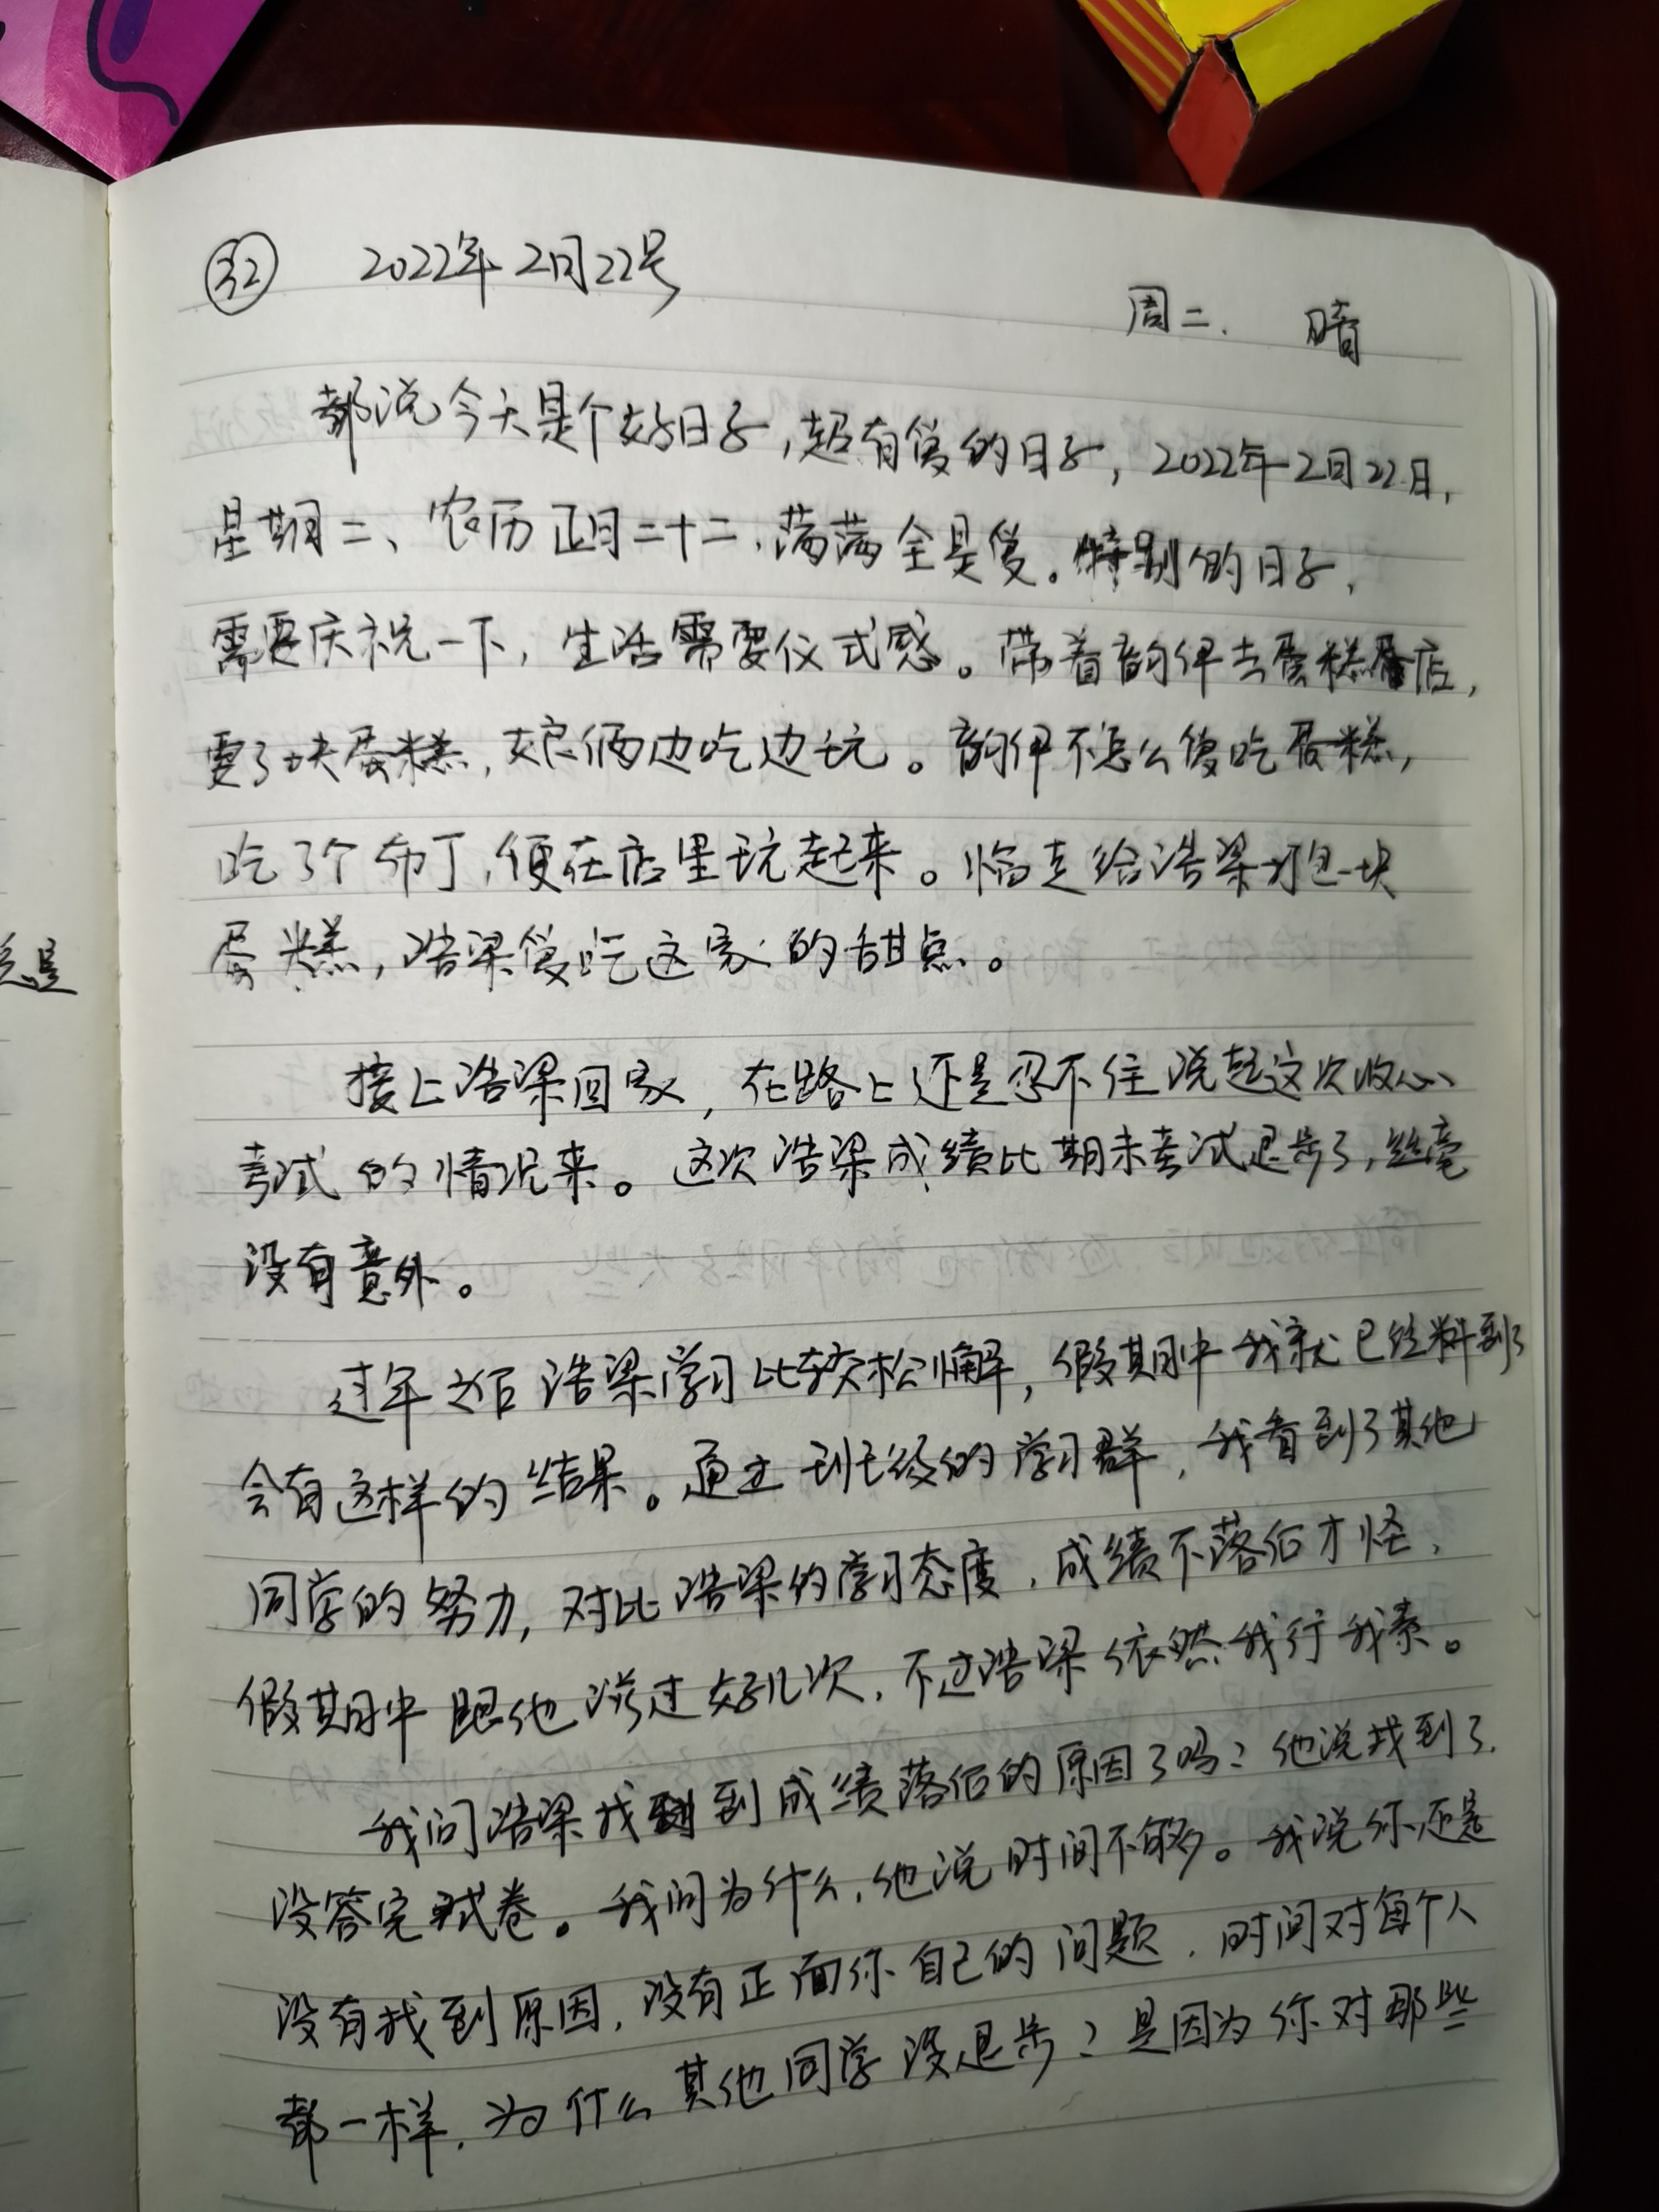 32 2022年2月22号
周二. 晴
都说今天是个好日子,超有爱的日子,2022年2月22日,
星期二、农历正月二十二,满满全是爱。特别的日子,
需要庆祝一下,生活需要仪式感。带着韵伊去蛋糕店,
要了块蛋糕,娘俩边吃边玩。韵伊不怎么爱吃蛋糕,
吃了个布丁,便在店里玩起来。临走给浩梁打包一块
蛋糕,浩梁爱吃这家的甜点。
接上浩梁回家,在路上还是忍不住说起这次收心
考试的情况来。这次浩梁成绩比期末考试退步了,丝毫
没有意外。
过年之后浩梁学习比较松懈,假期中我就已经料到了
会有这样的结果。通过班级的学习群,我看到了其他
同学的努力,对比浩梁的学习态度,成绩不落后才怪,
假期中跟他说过好几次,不过浩梁依然我行我素。
我问浩梁找到成绩落后的原因了吗?他说找到了,
没答完试卷。我问为什么,他说时间不够。我说你还是
没有找到原因,没有正面你自己的问题,时间对每个人
都一样,为什么其他同学没退步?是因为你对那些
总是